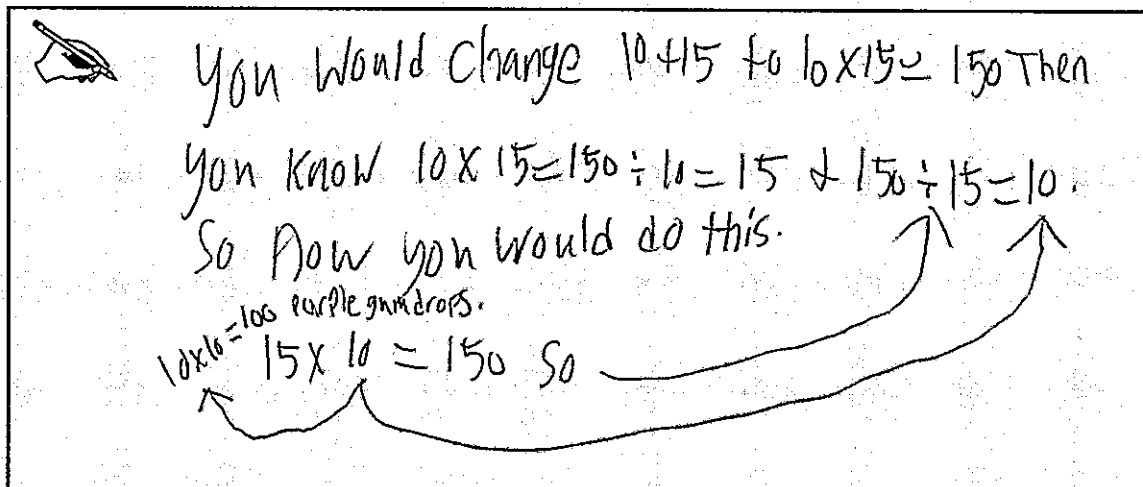 You Would Change 10+15 to 10x15= 150 Then
you know 10 X 15=150÷10=15 & 150÷15=10.
So now you would do this.
10x10=100 purple gumdrops.
15x 10 = 150 So